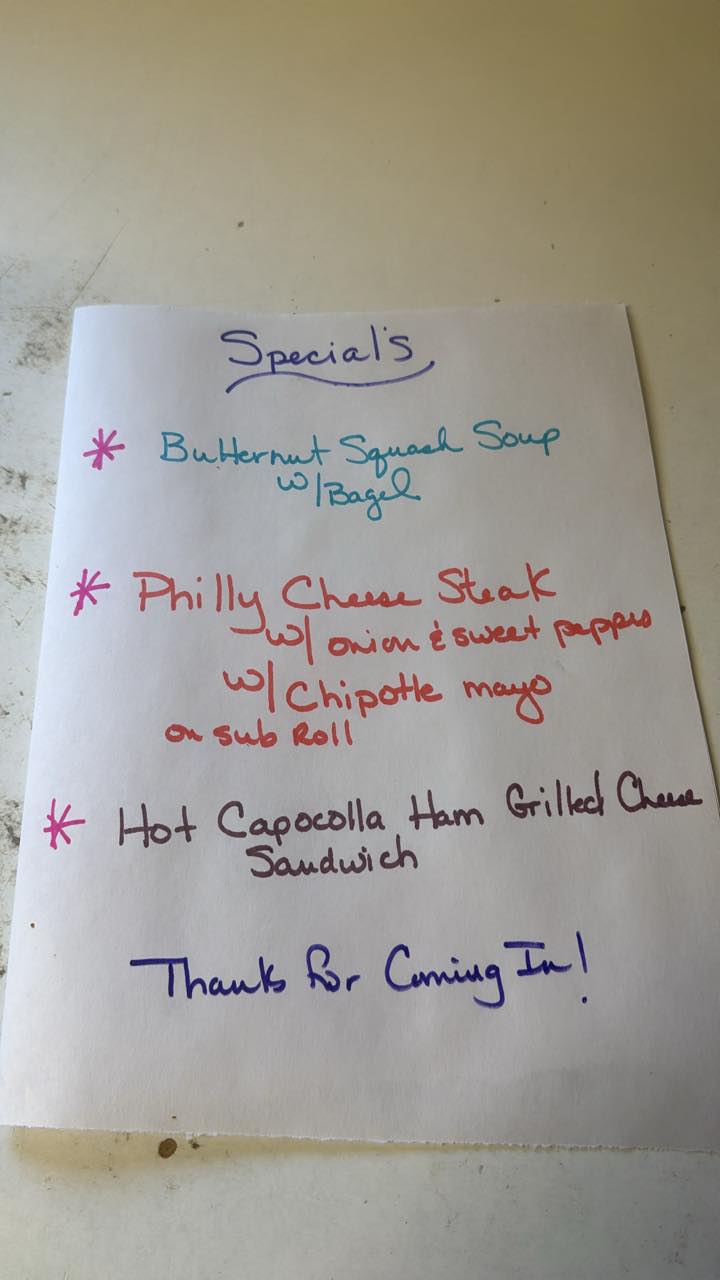 Special's
* Butternut Squash Soup
w/Bagel
* Philly Cheese Steak
w/ onion & sweet peppers
w/ Chipotle mayo
on sub Roll
* Hot Capocolla Ham Grilled Cheese
Sandwich
Thanks For Coming In!